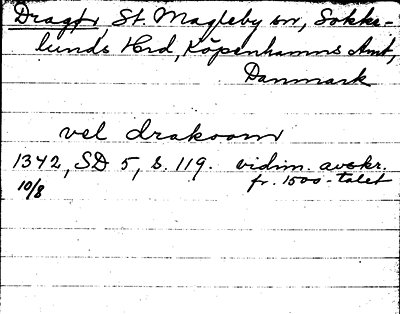 Dragør, St. Magleby sn, Sokke-
lunds Hrd, Köpenhamns Amt,
Danmark
vel drakoom
1342, SD 5, s. 119. vidim. avskr.
10/8 fr. 1500-talet